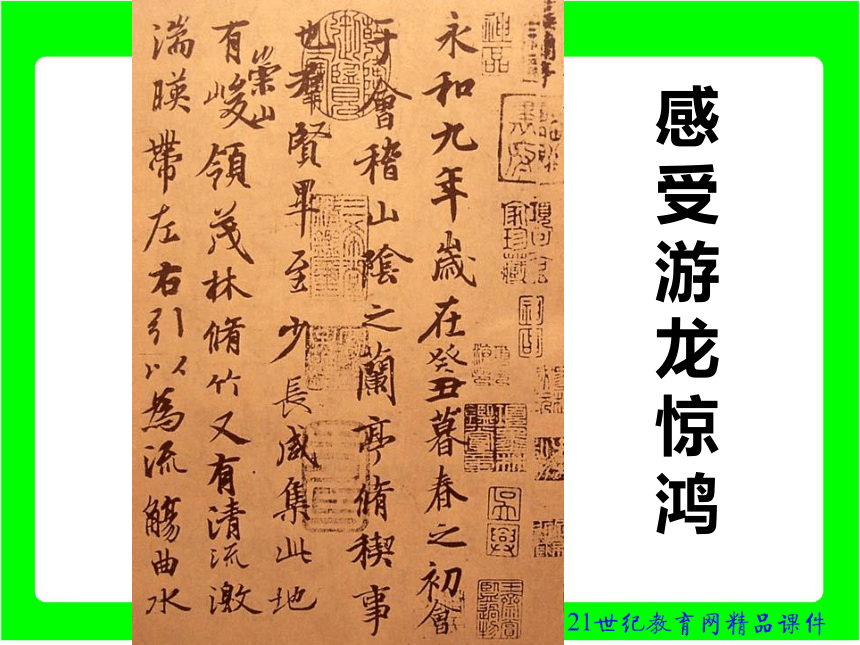 感受游龙惊鸿
永和九年歲在癸丑暮春之初會
于會稽山陰之蘭亭脩稧事
也羣賢畢至少長咸集此地
有崇山峻領茂林脩竹又有清流激
湍暎帶左右引以為流觴曲水
21世纪教育网精品课件